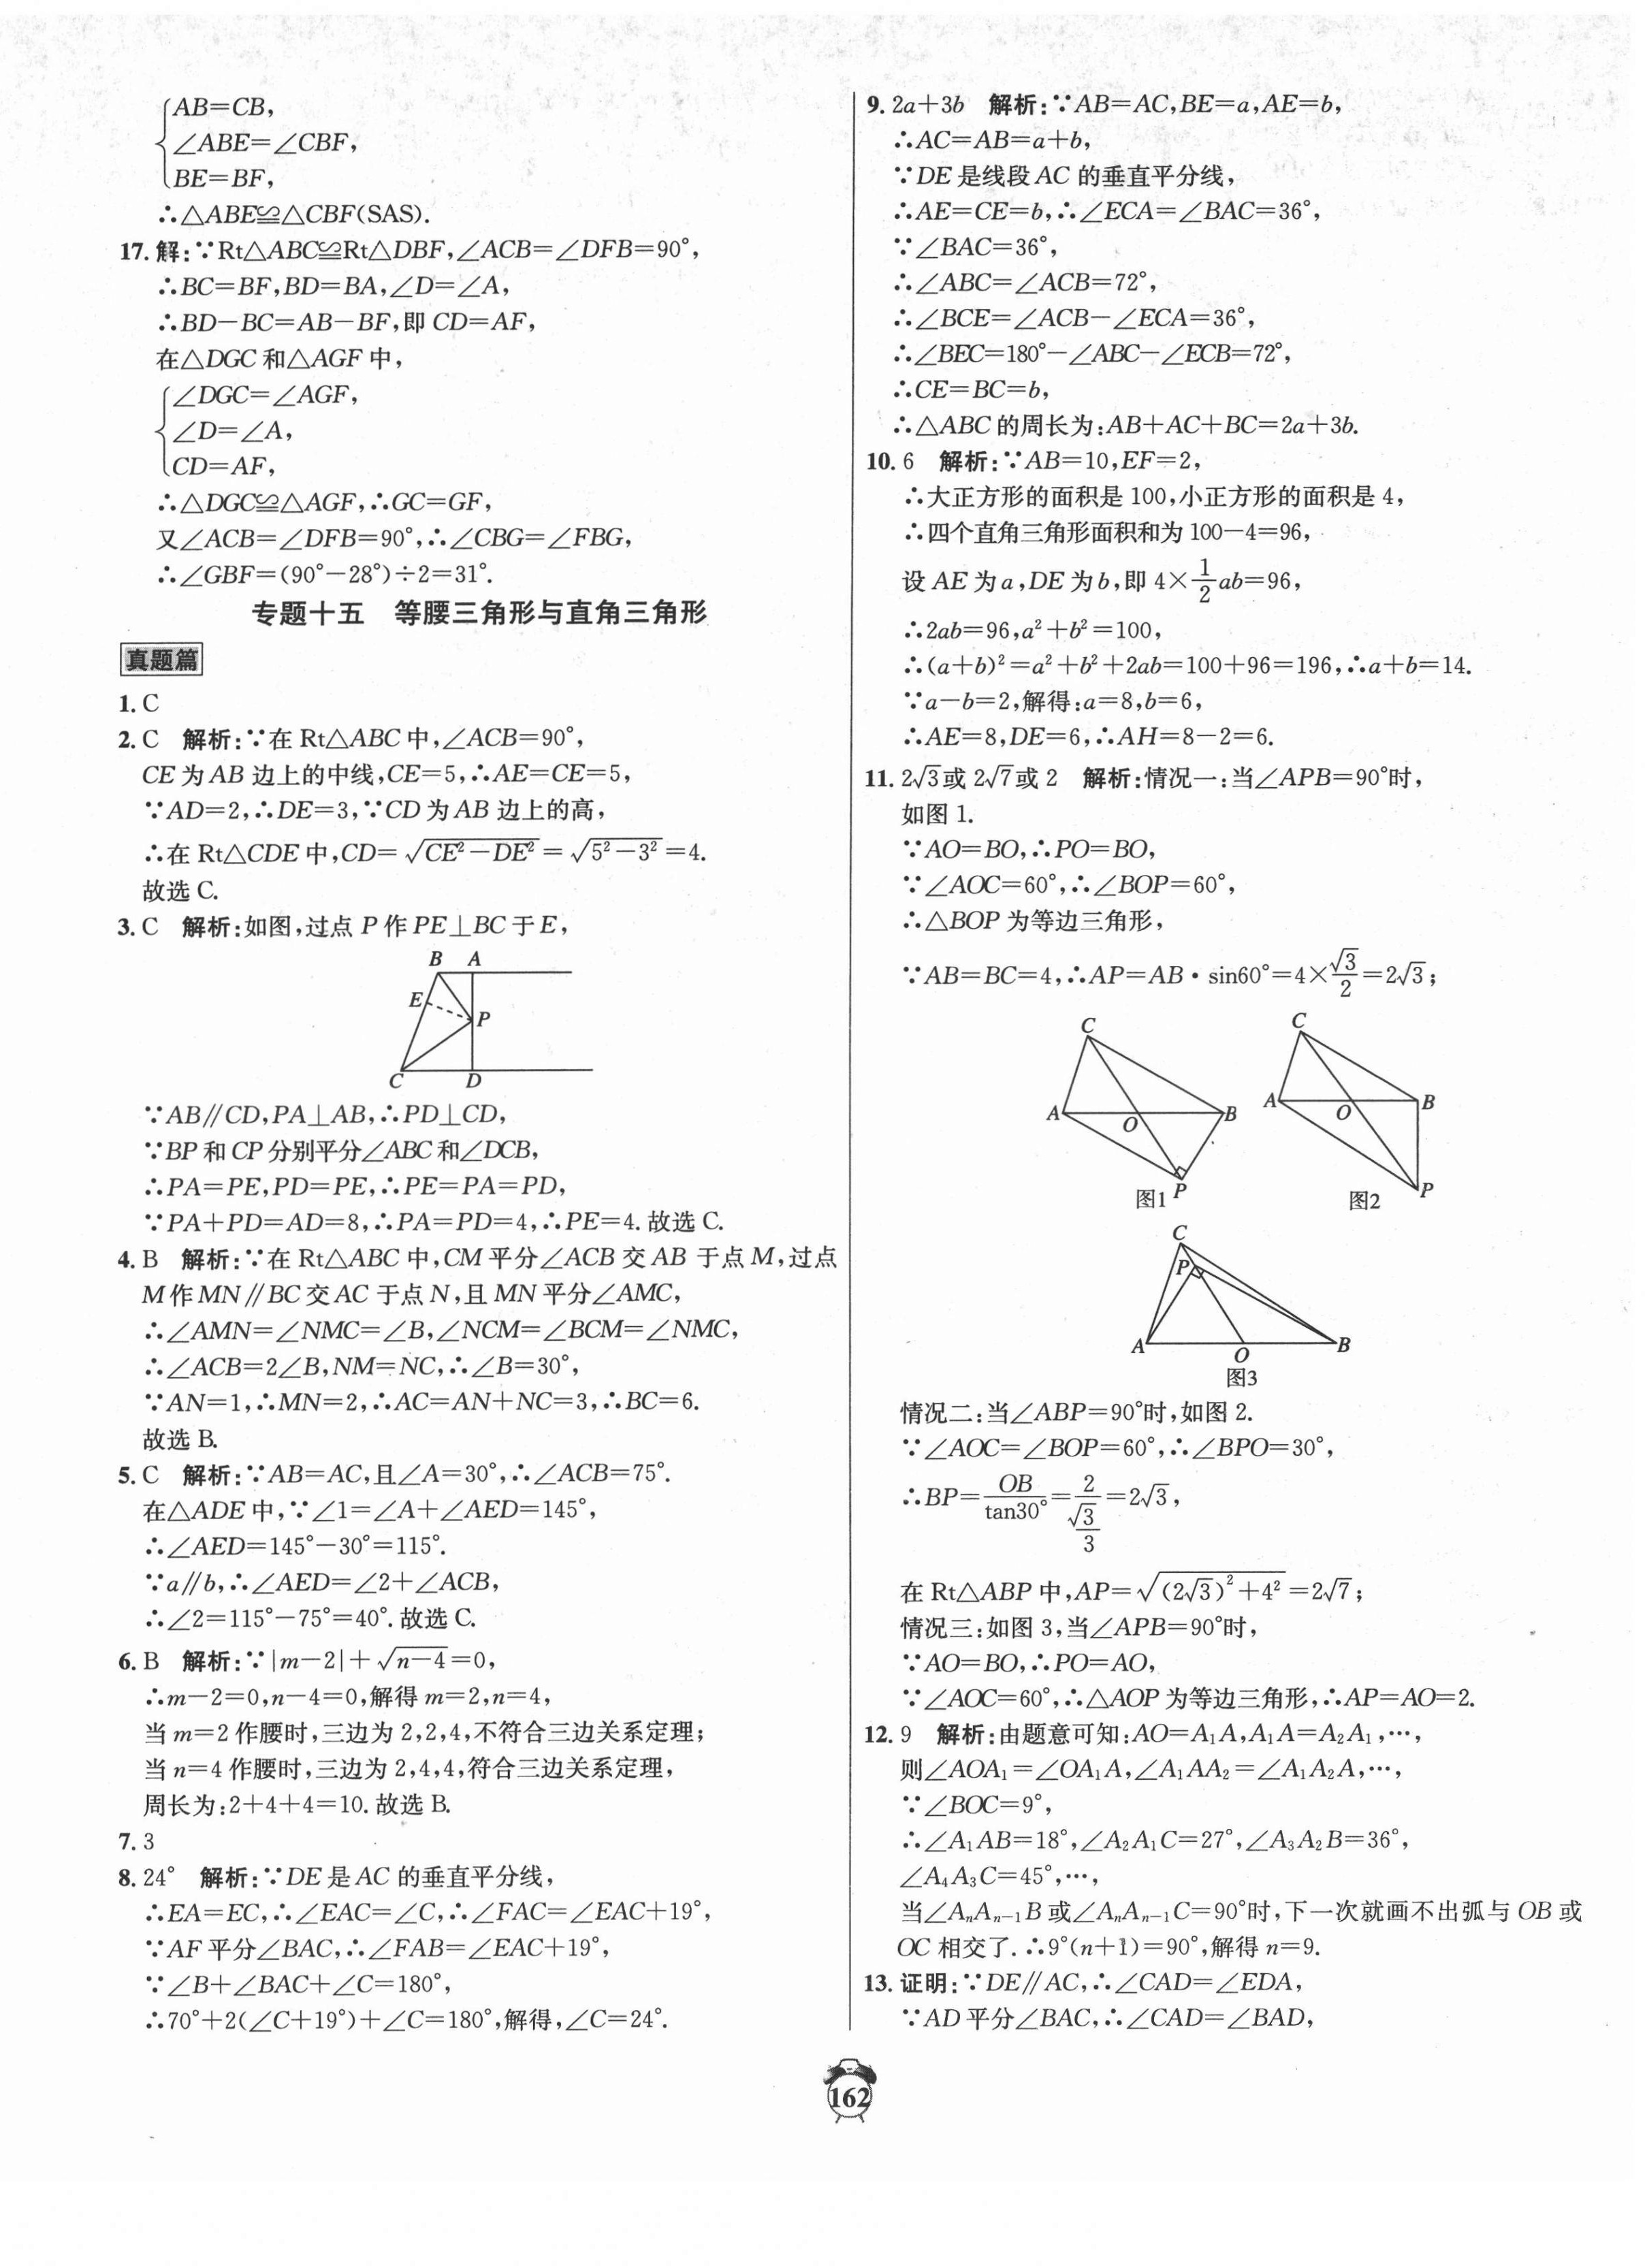 AB=CB,
∠ABE=∠CBF,
BE=BF,
∴△ABE≌△CBF(SAS).
17. 解:∵Rt△ABC≌Rt△DBF,∠ACB=∠DFB=90°,
∴BC=BF,BD=BA,∠D=∠A,
∴BD-BC=AB-BF,即 CD=AF,
在△DGC 和△AGF 中,
∠DGC=∠AGF,
∠D=∠A,
CD=AF,
∴△DGC≌△AGF,∴GC=GF,
又∠ACB=∠DFB=90°,∴∠CBG=∠FBG,
∴∠GBF=(90°-28°)÷2=31°.
专题十五 等腰三角形与直角三角形
真题篇
1. C
2. C 解析:∵在 Rt△ABC 中,∠ACB=90°,
CE 为 AB 边上的中线,CE=5,∴AE=CE=5,
∵AD=2,∴DE=3,∵CD 为 AB 边上的高,
∴在 Rt△CDE 中,CD=√(CE²-DE²)=√(5²-3²)=4.
故选 C.
3. C 解析:如图,过点 P 作 PE⊥BC 于 E,
B A
E
P
C D
∵AB∥CD,PA⊥AB,∴PD⊥CD,
∵BP 和 CP 分别平分∠ABC 和∠DCB,
∴PA=PE,PD=PE,∴PE=PA=PD,
∵PA+PD=AD=8,∴PA=PD=4,∴PE=4. 故选 C.
4. B 解析:∵在 Rt△ABC 中,CM 平分∠ACB 交 AB 于点 M,过点
M 作 MN∥BC 交 AC 于点 N,且 MN 平分∠AMC,
∴∠AMN=∠NMC=∠B,∠NCM=∠BCM=∠NMC,
∴∠ACB=2∠B,NM=NC,∴∠B=30°,
∵AN=1,∴MN=2,∴AC=AN+NC=3,∴BC=6.
故选 B.
5. C 解析:∵AB=AC,且∠A=30°,∴∠ACB=75°.
在△ADE 中,∵∠1=∠A+∠AED=145°,
∴∠AED=145°-30°=115°.
∵a∥b,∴∠AED=∠2+∠ACB,
∴∠2=115°-75°=40°. 故选 C.
6. B 解析:∵|m-2|+√(n-4)=0,
∴m-2=0,n-4=0,解得 m=2,n=4,
当 m=2 作腰时,三边为 2,2,4,不符合三边关系定理;
当 n=4 作腰时,三边为 2,4,4,符合三边关系定理,
周长为:2+4+4=10. 故选 B.
7. 3
8. 24° 解析:∵DE 是 AC 的垂直平分线,
∴EA=EC,∴∠EAC=∠C,∴∠FAC=∠EAC+19°,
∵AF 平分∠BAC,∴∠FAB=∠EAC+19°,
∵∠B+∠BAC+∠C=180°,
∴70°+2(∠C+19°)+∠C=180°,解得,∠C=24°.
9. 2a+3b 解析:∵AB=AC,BE=a,AE=b,
∴AC=AB=a+b,
∵DE 是线段 AC 的垂直平分线,
∴AE=CE=b,∴∠ECA=∠BAC=36°,
∵∠BAC=36°,
∴∠ABC=∠ACB=72°,
∴∠BCE=∠ACB-∠ECA=36°,
∴∠BEC=180°-∠ABC-∠ECB=72°,
∴CE=BC=b,
∴△ABC 的周长为:AB+AC+BC=2a+3b.
10. 6 解析:∵AB=10,EF=2,
∴大正方形的面积是 100,小正方形的面积是 4,
∴四个直角三角形面积和为 100-4=96,
设 AE 为 a,DE 为 b,即 4×1/2ab=96,
∴2ab=96,a²+b²=100,
∴(a+b)²=a²+b²+2ab=100+96=196,∴a+b=14.
∵a-b=2,解得:a=8,b=6,
∴AE=8,DE=6,∴AH=8-2=6.
11. 2√3或 2√7或 2 解析:情况一:当∠APB=90°时,
如图 1.
∵AO=BO,∴PO=BO,
∵∠AOC=60°,∴∠BOP=60°,
∴△BOP 为等边三角形,
∵AB=BC=4,∴AP=AB·sin60°=4×√3/2=2√3;
C
A O B
P
图1
C
A O B
P
图2
C
P
A O B
图3
情况二:当∠ABP=90°时,如图 2.
∵∠AOC=∠BOP=60°,∴∠BPO=30°,
∴BP=OB/tan30°=2/(√3/3)=2√3,
在 Rt△ABP 中,AP=√((2√3)²+4²)=2√7;
情况三:如图 3,当∠APB=90°时,
∵AO=BO,∴PO=AO,
∵∠AOC=60°,∴△AOP 为等边三角形,∴AP=AO=2.
12. 9 解析:由题意可知:AO=A₁A,A₁A=A₂A₁,…,
则∠AOA₁=∠OA₁A,∠A₁AA₂=∠A₁A₂A,…,
∵∠BOC=9°,
∴∠A₁AB=18°,∠A₂A₁C=27°,∠A₃A₂B=36°,
∠A₄A₃C=45°,…,
当∠AₙAₙ₋₁B 或∠AₙAₙ₋₁C=90°时,下一次就画不出弧与 OB 或
OC 相交了. ∴9°(n+1)=90°,解得 n=9.
13. 证明:∵DE∥AC,∴∠CAD=∠EDA,
∵AD 平分∠BAC,∴∠CAD=∠BAD,
162